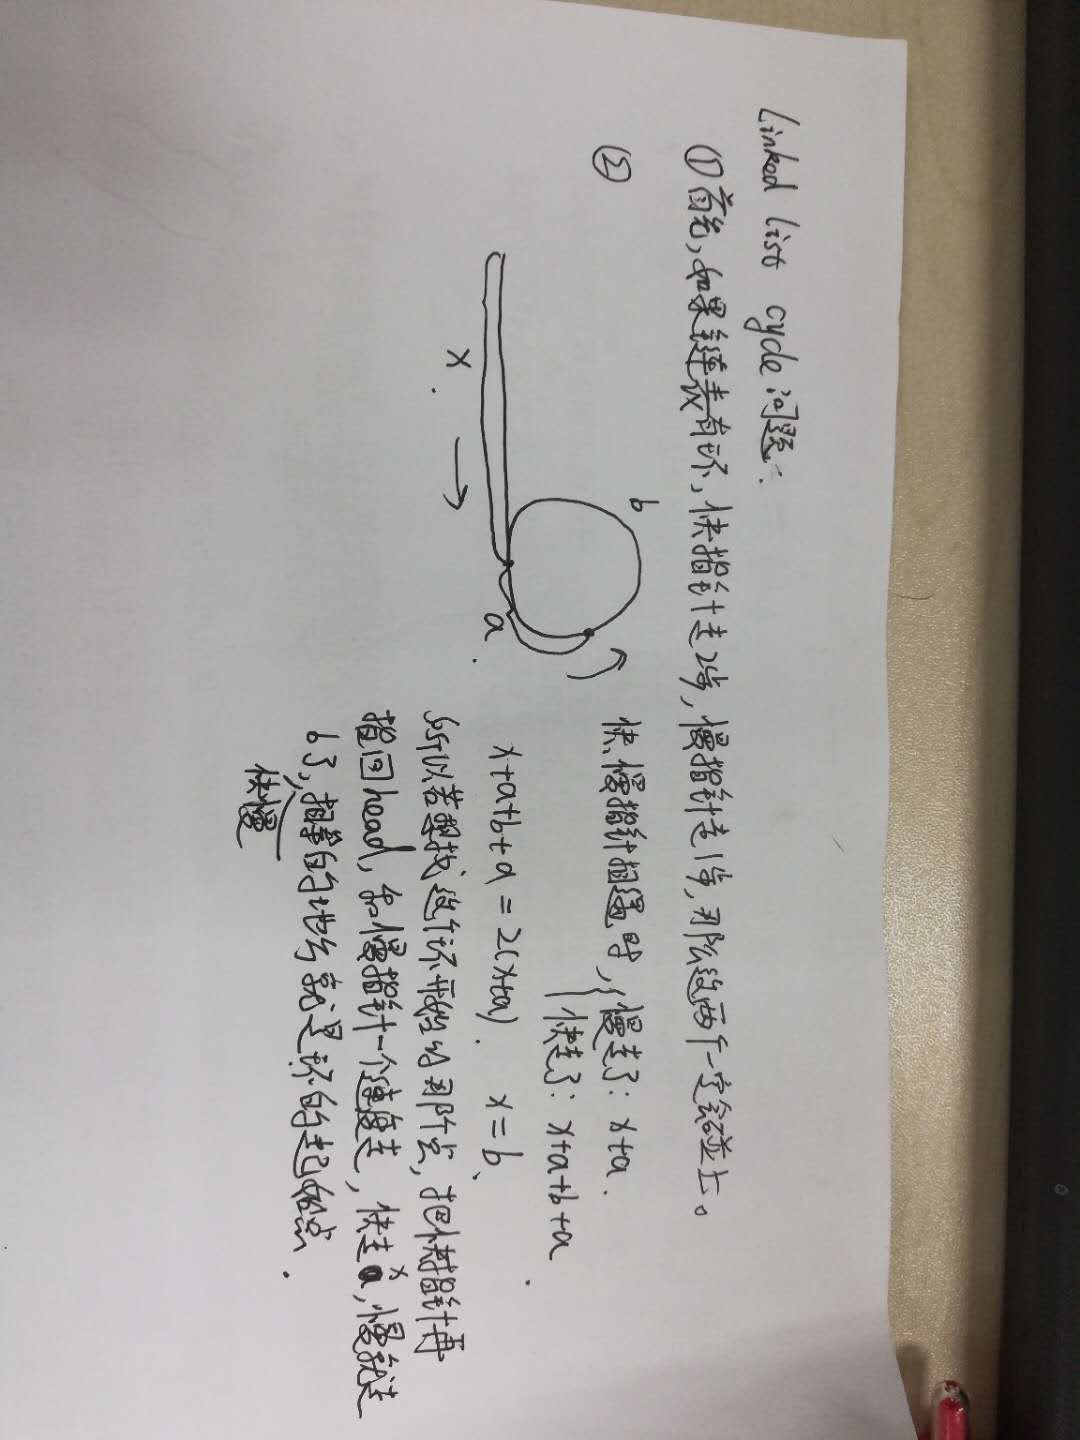 Linked list cycle问题:
①首先,如果链表有环,快指针走2步,慢指针走1步,那么这两个一定会碰上。
②
b
x
a
快、慢指针相遇时,
慢走了: x+a.
快走了: x+a+b+a
x+a+b+a=2(x+a). x=b、
所以若想找这个环开始的那个点,把快指针再
指回head,和慢指针一个速度走,快走x,慢就走
b了,相等的地方就是环的起始点.
快慢